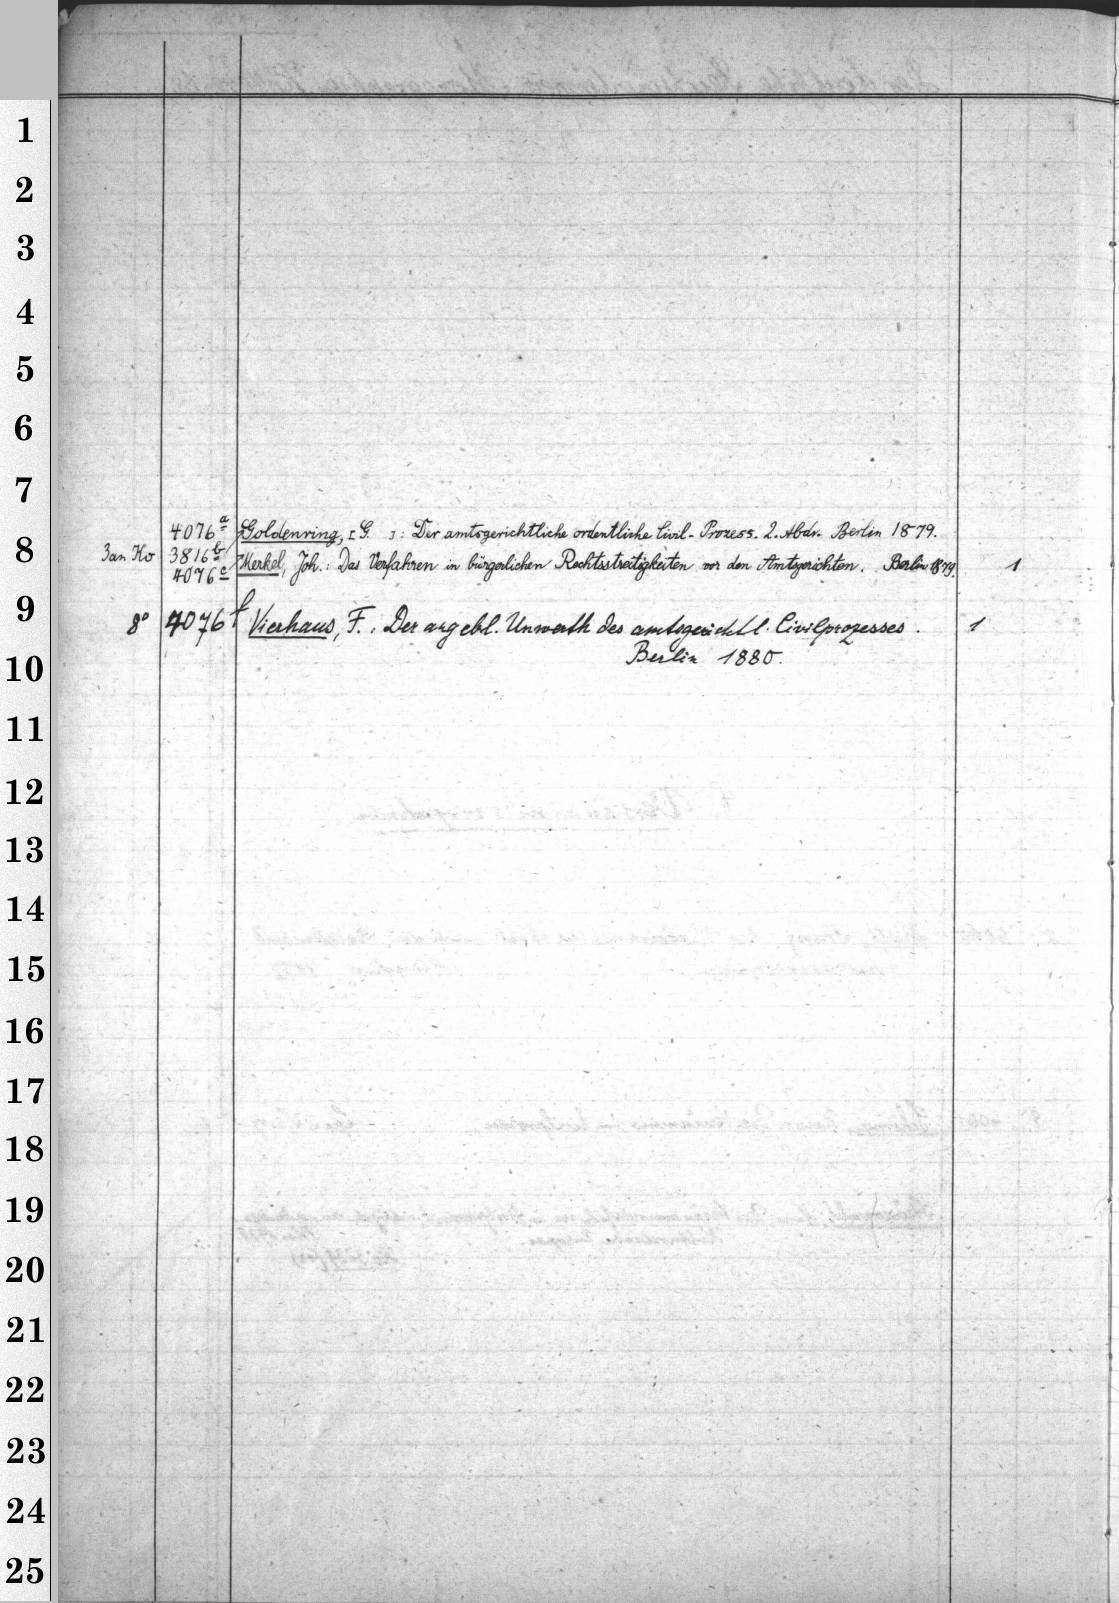 1
2
3
4
5
6
7
4076a Goldenring, [G. ]: Der amtsgerichtliche ordentliche Civil-Prozess. 2. Abdr. Berlin 1879.
8
3an Ko 3816b
4076e Merkel, Joh.: Das Verfahren in bürgerlichen Rechtsstreitigkeiten vor den Amtsgerichten. Berlin 1879. 1
9
8° 4076f Vierhaus, F.: Der angebl. Unwerth des amtsgerichtl. Civilprozesses. 1
Berlin 1880.
10
11
12
13
14
15
16
17
18
19
20
21
22
23
24
25